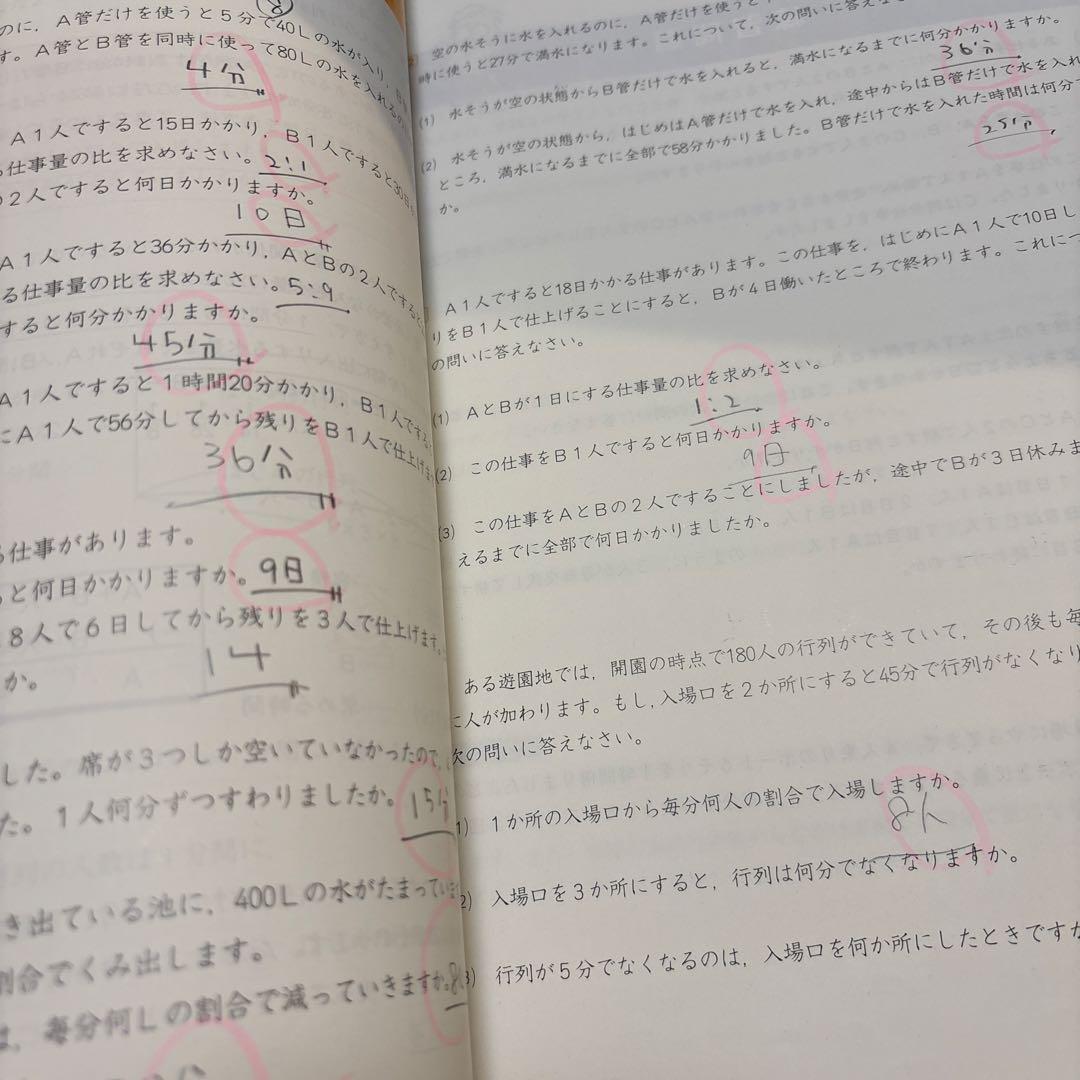 ⑧
のに，A管だけを使うと5分で40Lの水が入り，B管
す。A管とB管を同時に使って80Lの水を入れるのに
4分
A1人ですると15日かかり，B1人ですると30日
仕事量の比を求めなさい。2:1
2人ですると何日かかりますか。
10日
A1人ですると36分かかり，AとBの2人ですると
る仕事量の比を求めなさい。5:9
すると何分かかりますか。
45分
A1人ですると1時間20分かかり，B1人ですると
にA1人で56分してから残りをB1人で仕上げます
36分
る仕事があります。
と何日かかりますか。9日
8人で6日してから残りを3人で仕上げます。
か。
14
した。席が3つしか空いていなかったので，
た。1人何分ずつすわりましたか。15分
き出ている池に，400Lの水がたまってい
割合でくみ出します。
は，毎分何Lの割合で減っていきますか。8
分
空の水そうに水を入れるのに，A管だけを使うと
時に使うと27分で満水になります。これについて，次の問いに答えな
(1) 水そうが空の状態からB管だけで水を入れると，満水になるまでに何分かかりますか。
36分
(2) 水そうが空の状態から，はじめはA管だけで水を入れ，途中からはB管だけで水を入れ
ところ，満水になるまでに全部で58分かかりました。B管だけで水を入れた時間は何分で
か。
25分
A1人ですると18日かかる仕事があります。この仕事を，はじめにA1人で10日し
りをB1人で仕上げることにすると，Bが4日働いたところで終わります。これにつ
の問いに答えなさい。
(1) AとBが1日にする仕事量の比を求めなさい。
1:2
(2) この仕事をB1人ですると何日かかりますか。
9日
(3) この仕事をAとBの2人ですることにしましたが，途中でBが3日休みま
えるまでに全部で何日かかりましたか。
ある遊園地では，開園の時点で180人の行列ができていて，その後も毎
に人が加わります。もし，入場口を2か所にすると45分で行列がなくなり
次の問いに答えなさい。
1) 1か所の入場口から毎分何人の割合で入場しますか。
8人
2) 入場口を3か所にすると，行列は何分でなくなりますか。
3) 行列が5分でなくなるのは，入場口を何か所にしたときですか